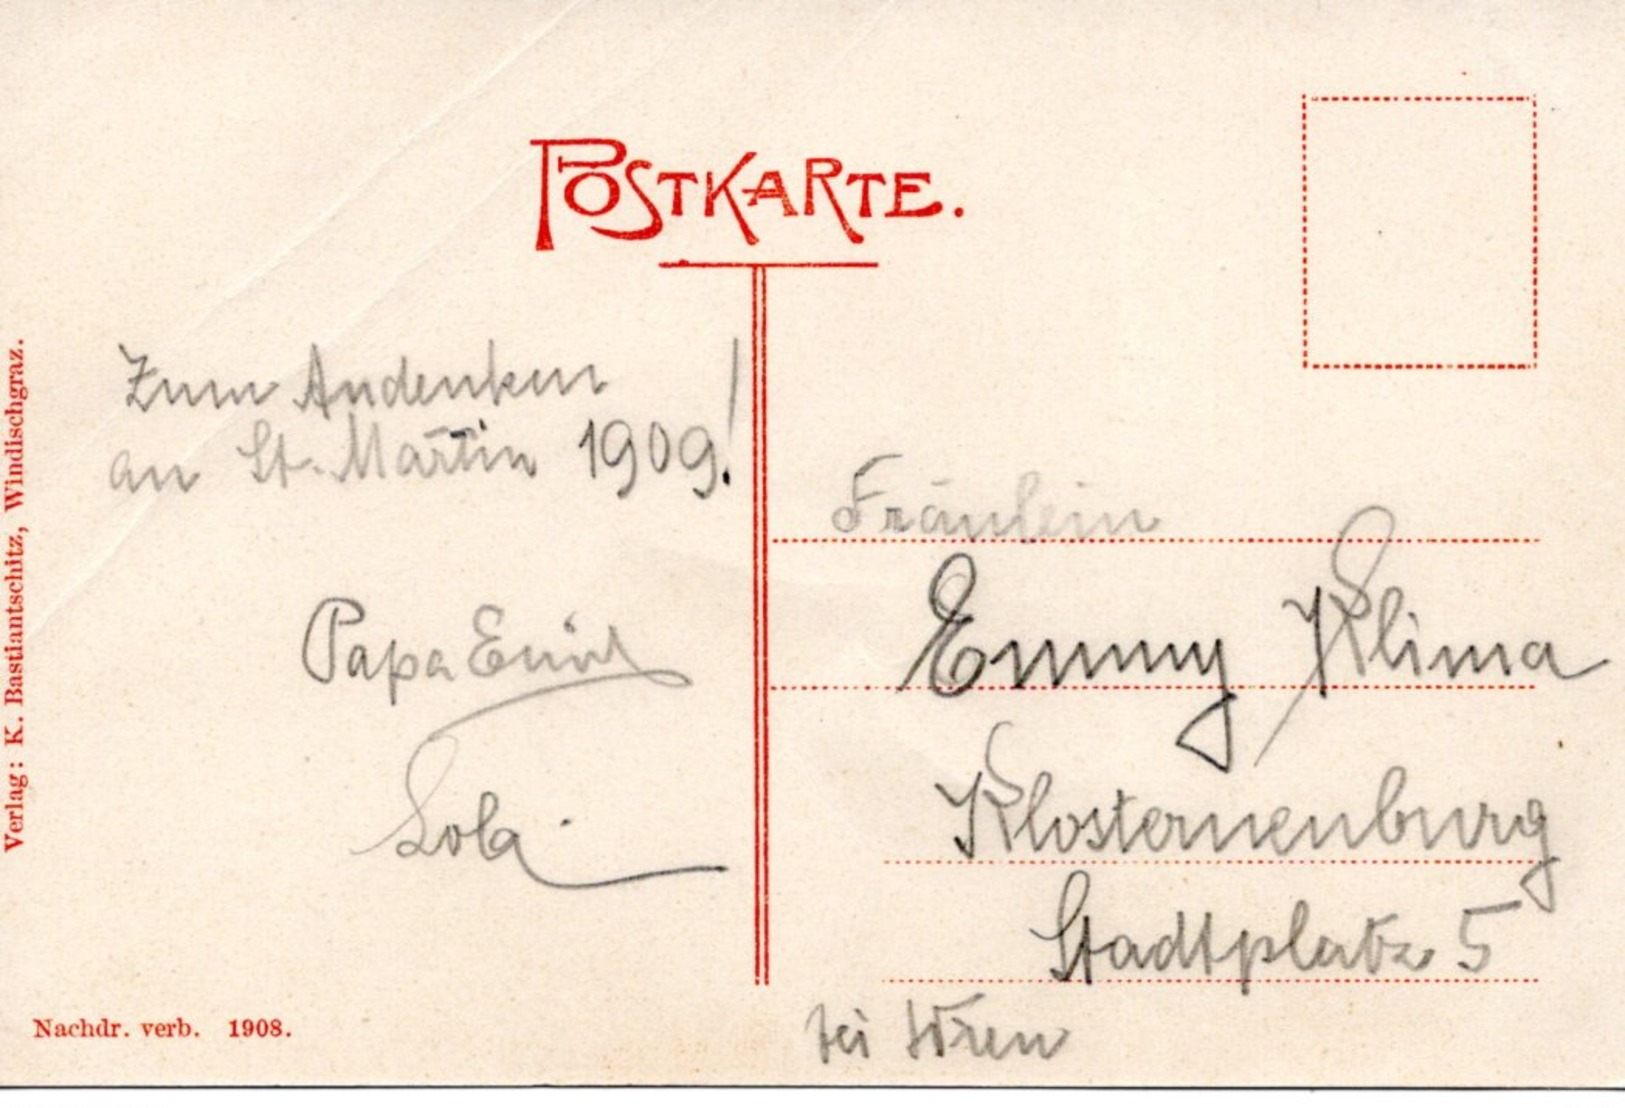 POSTKARTE.
Zum Andenken
an St. Martin 1909!
Papa Emil
Lola
Fräulein
Emmy Klima
Klosterneuburg
Stadtplatz 5
bei
Verlag: K. Bastiantschitz, Windischgraz.
Nachdr. verb. 1908.